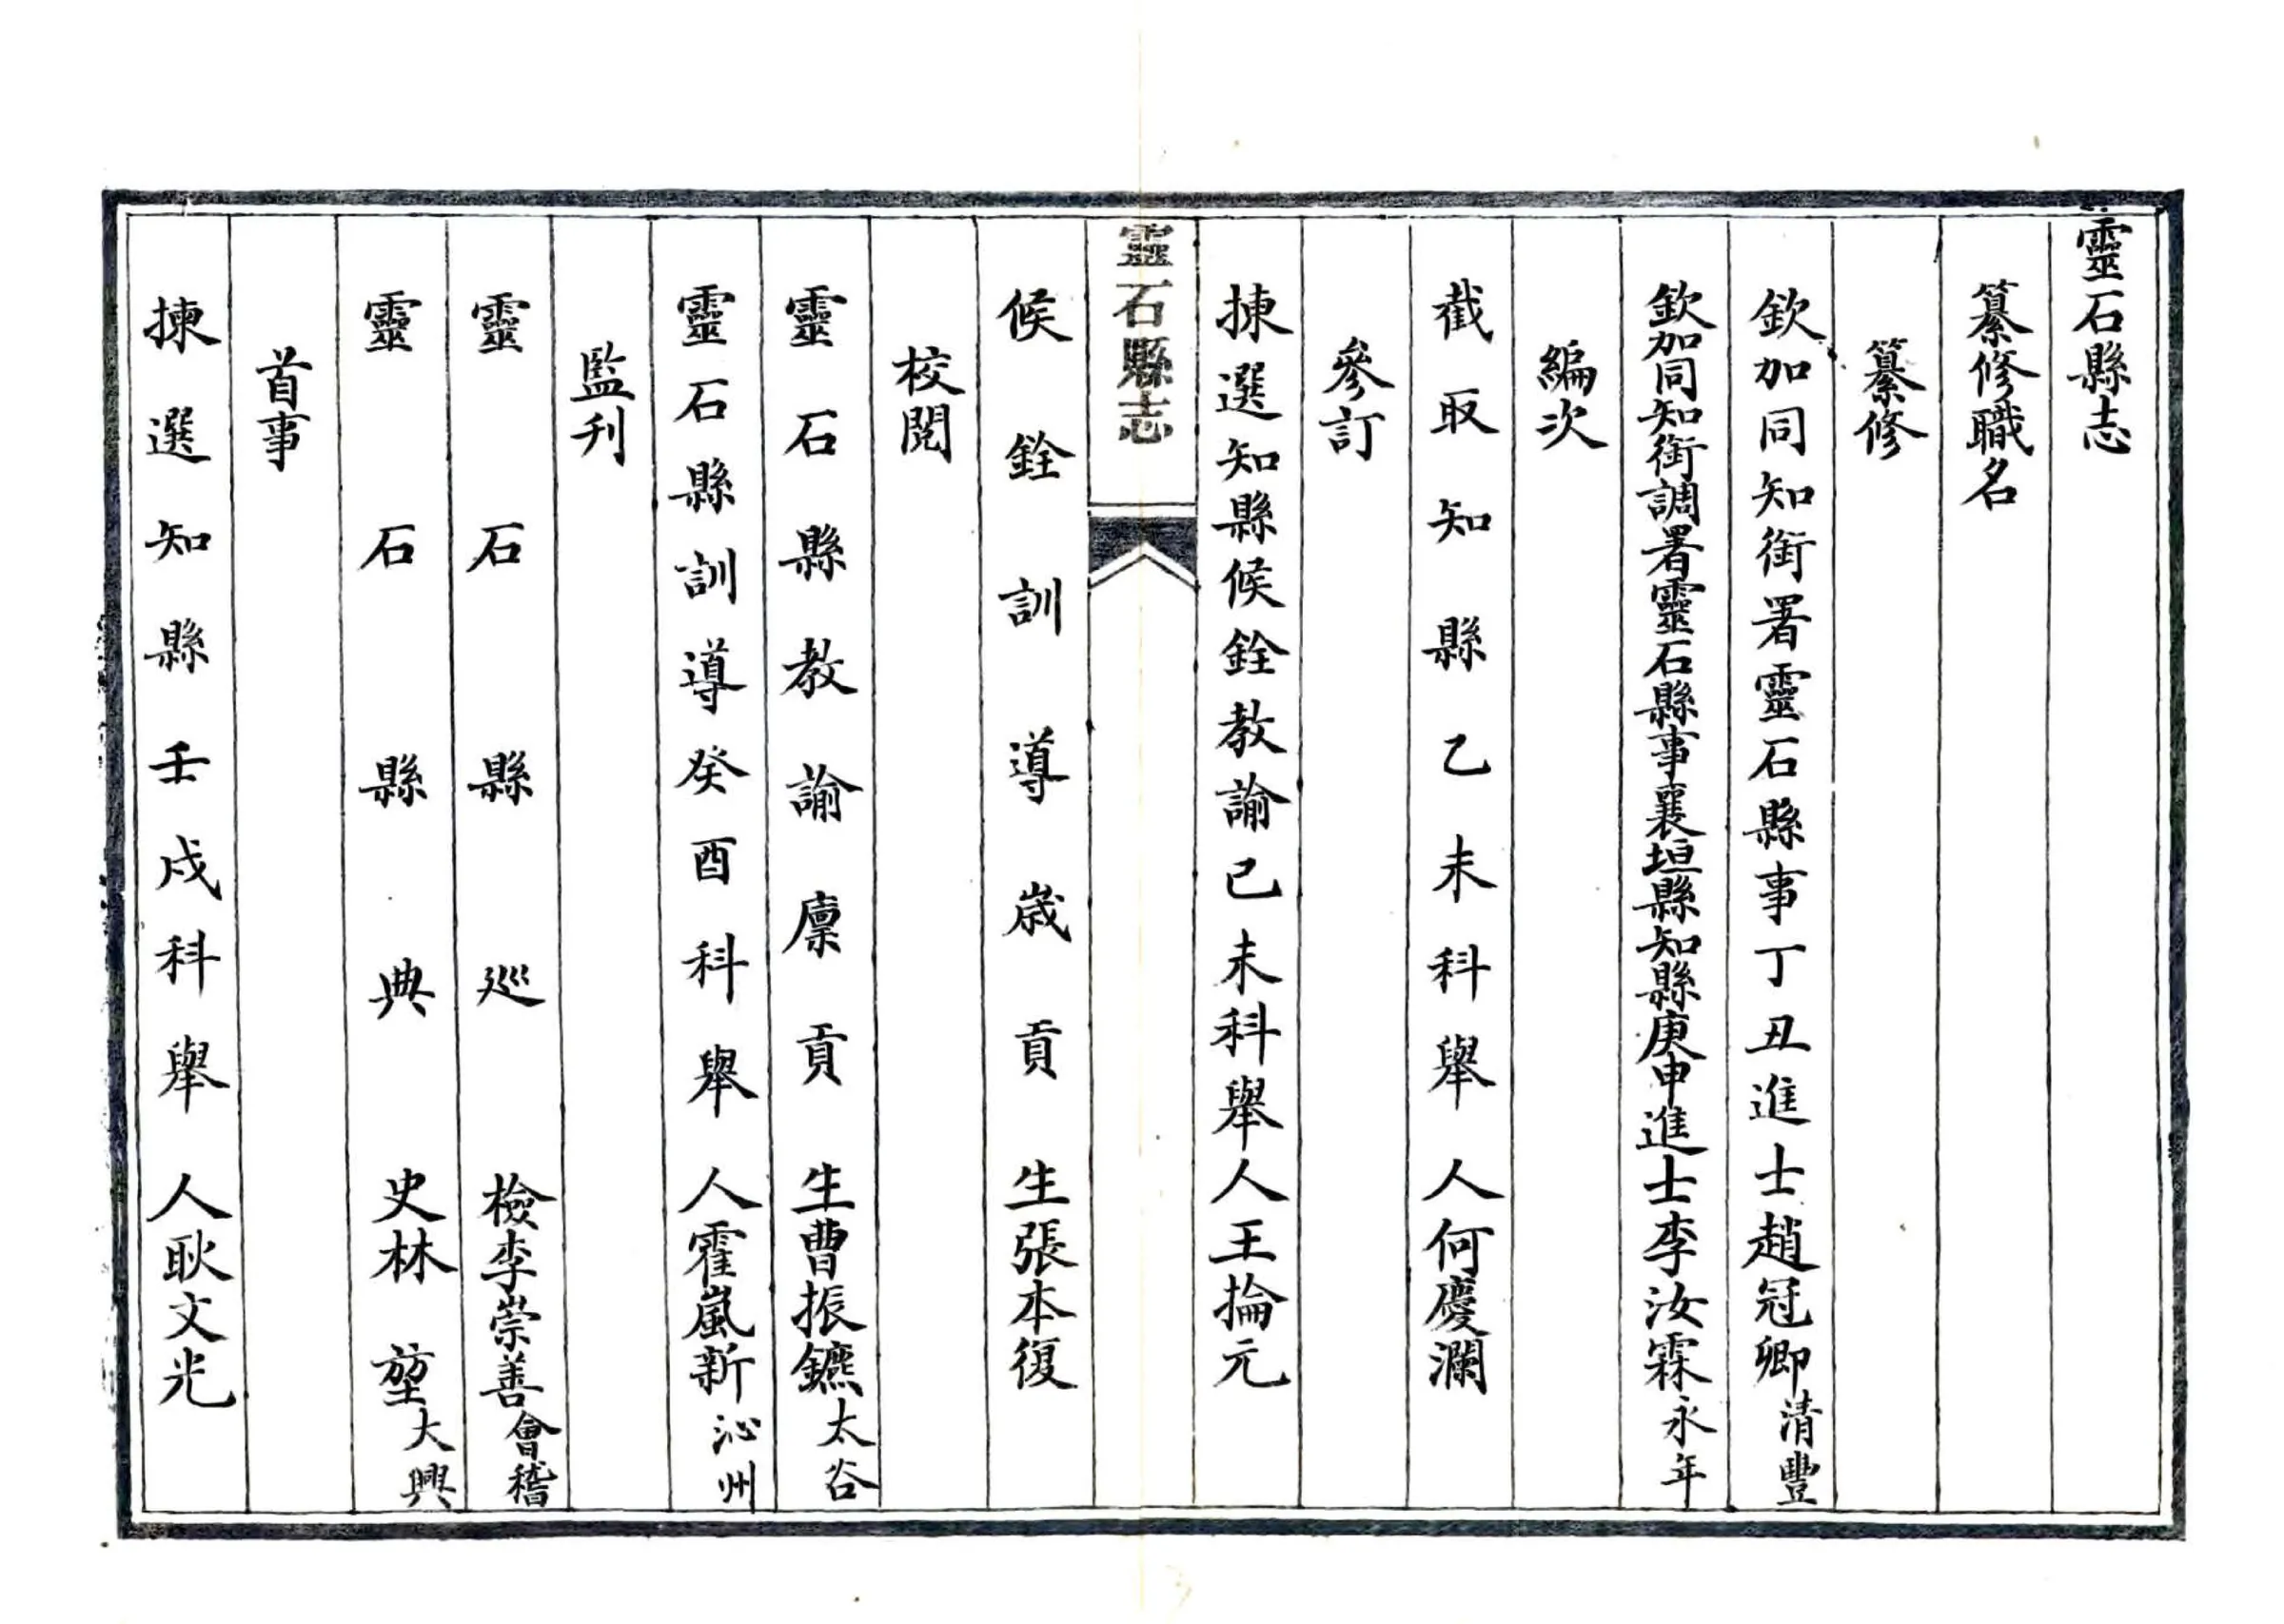 靈石縣志
纂修職名
纂修
欽加同知銜署靈石縣事丁丑進士趙冠卿清豐
欽加同知銜調署靈石縣事襄垣縣知縣庚申進士李汝霖永年
編次
截取知縣乙未科舉人何慶瀾
參訂
揀選知縣候銓教諭己未科舉人王掄元
靈石縣志
候銓訓導歲貢生張本復
校閱
靈石縣教諭廩貢生曹振鑣太谷
靈石縣訓導癸酉科舉人霍嵐新沁州
監刋
靈石縣巡檢李崇善會稽
靈石縣典史林堃大興
首事
揀選知縣壬戌科舉人耿文光